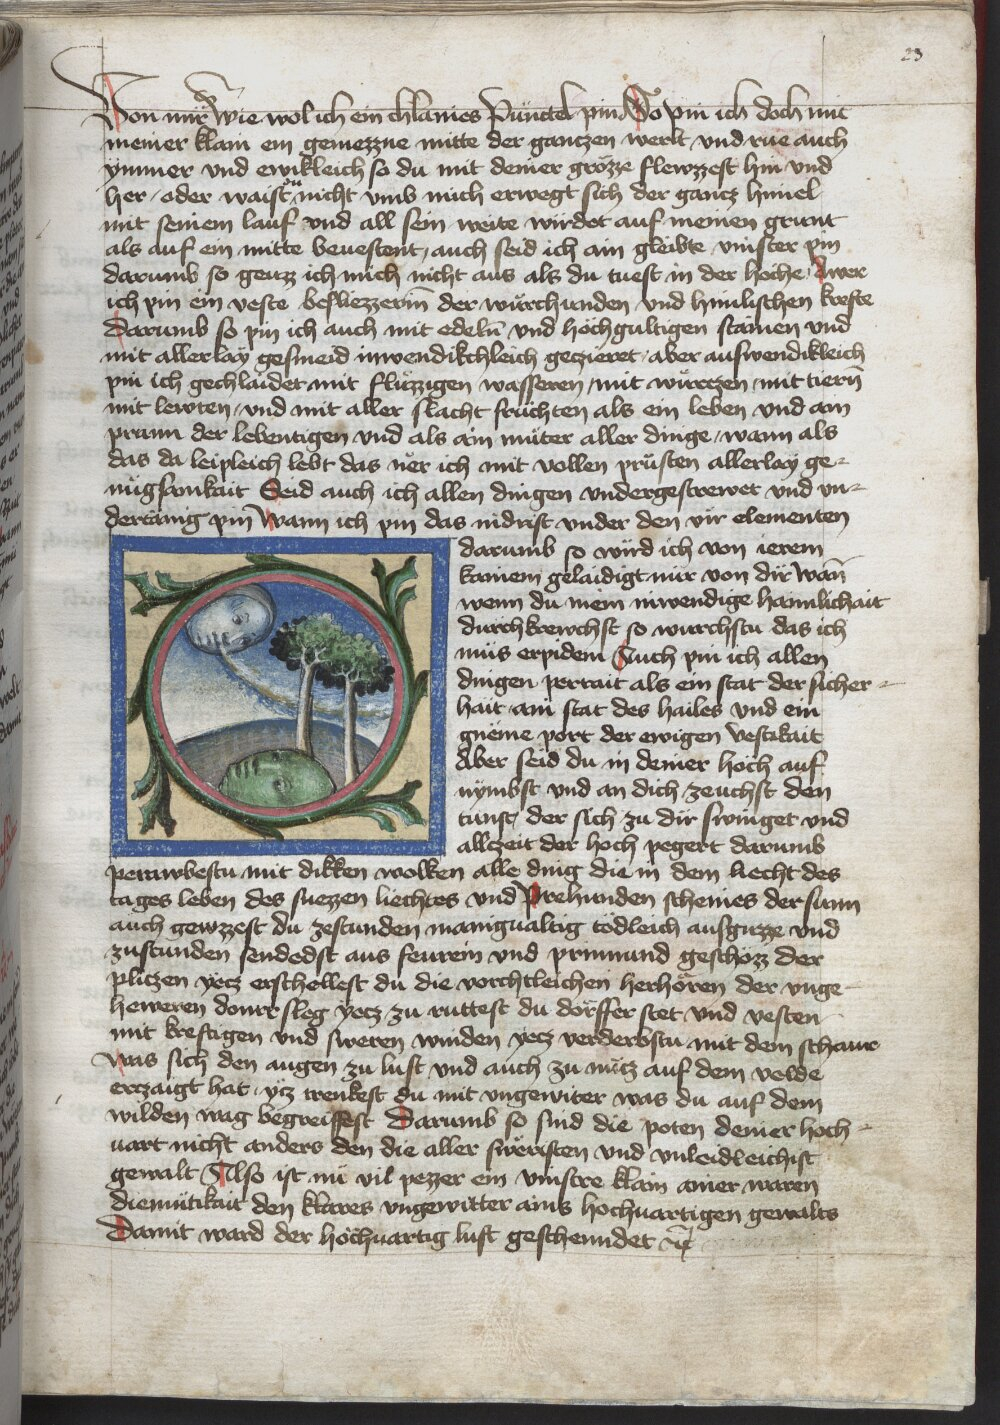 23
Von mir wie wol ich ein chlaines Pünctel pin So pin ich doch mit
meiner klain ein gemezzne mitte der ganczen werlt vnd rue auch
ymmer vnd ewikleich so du mit deiner grözze flewzzest hin vnd
her / oder waistu nicht vmb mich erwegt sich der gancz himel
mit seinem lauf vnd all sein weite wirdet auf meinen grunt
als auf ein mitte beuestent / auch seid ich ain gleibte vinster pin
darumb so geuzz ich mich nicht aus als du tuest in der höche / Awer
ich pin ein veste besliezzerin̄ der würchunden vnd himlischen krefte
Darumb so pin ich auch mit edeln̄ vnd hochgultigen stainen vnd
mit allerlay gesmeid inwendikchleich geczieret / aber auswendikleich
pin ich gechlaidet mit flüzzigen wasseren / mit würczen / mit tiern̄
mit lewten / vnd mit aller slacht früchten als ein leben vnd ain
prunn der lebentigen vnd als ain müter aller dinge / wann als
das da leipleich lebt das ner ich mit vollen prüsten allerlay ge-
nügsamkait Seid auch ich allen dingen vndergestrewet vnd vn-
dertänig pin Wann ich pin das nidrist vnder den vir elementen
darumb so wird ich von ierem
kainem gelaidigt nür von dir Wan̄
wenn du mein inwendige haimlichait
durchkrewchst so würchstu das ich
müs erpidem Auch pin ich allen
dingen perait als ein stat der sicher-
hait ain stat des hailes vnd ein
gneme port der ewigen vestikait
Aber seid du in deiner höch auf
nymbst vnd an dich zeuchst den
tunst / der sich zu dir swinget vnd
allczeit der hoch pegert darumb
petrawbestu mit dikken wolken alle ding die in dem liecht des
tages leben des suezzen liechtes vnd Prehunden scheines der sunn
auch gewzzest du zestunden manigualtig tödleich ausguzze vnd
zustunden sendest aus feurein vnd prinnund geschözz der
plitzen yecz erschellest du die vorchtleichen herhören der vnge-
heweren donrrsleg yecz zu ruttest du dörffer stet vnd vesten
mit kreftigen vnd sweren winden yecz verderbstu mit dem schaur
Was sich den augen zu lust vnd auch zu nücz auf dem velde
erczaigt hat / yecz trenkest du mit vngewiter was du auf dem
wilden wag begreiffest Darumb so sind die poten deiner hoch-
uart nicht anders den die aller swëristen vnd vnleidleichist
gewalt Also ist nü vil pezzer ein vinstre klain ainer waren
diemütikait den klares vngewitter ains hochuartigen gewalts
Damit ward der höchuartig luft geschenndet